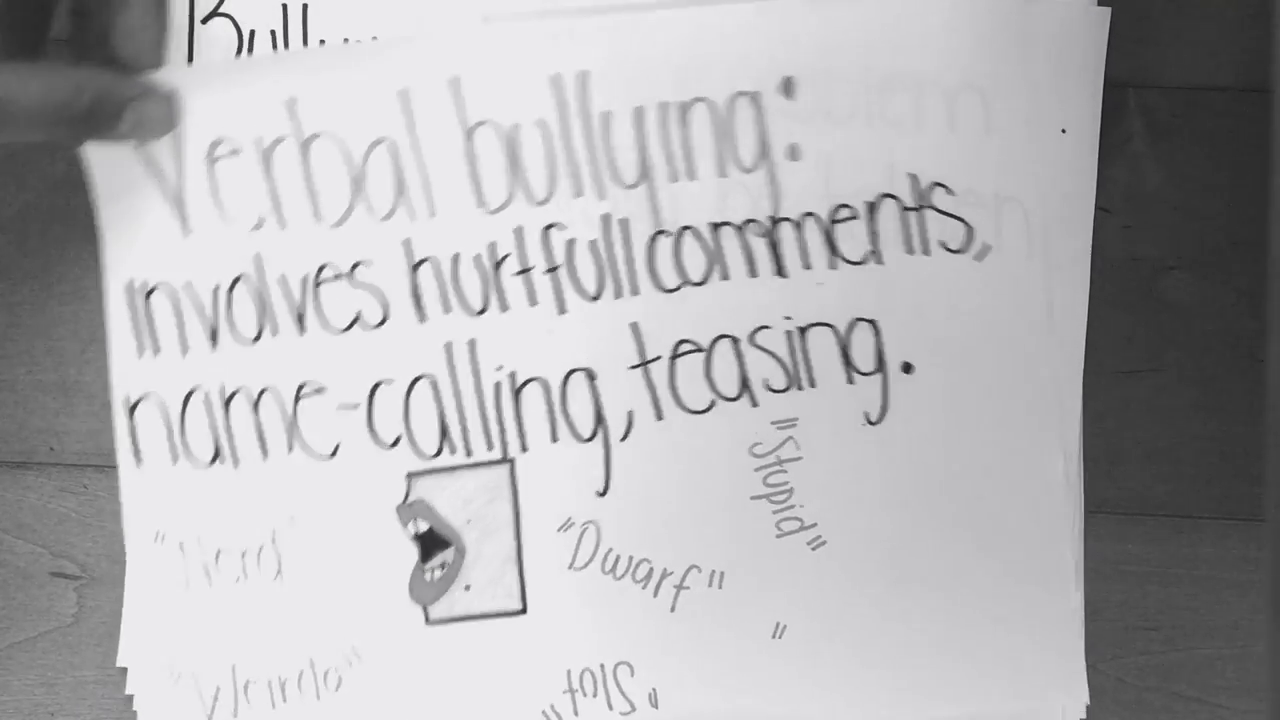 Bull
Verbal bullying:
involves hurtfull comments,
name-calling, teasing.
"Stupid"
"Nerd"
"Dwarf"
"
"Weirdo"
"Slot"